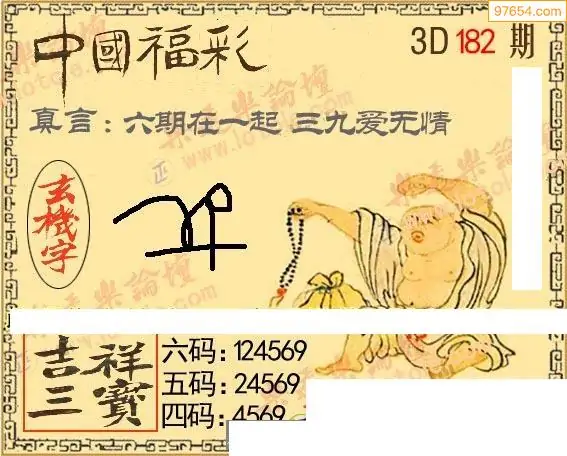 97654.com
中國福彩 3D 182 期
真言：六期在一起 三九爱无情
玄機字
吉祥三寶
六码：124569
五码：24569
四码：4569